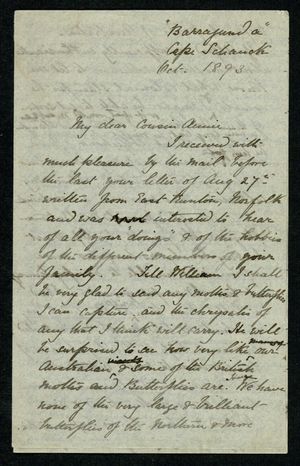 "Barragunda"
Cape Schanck
Oct. 1893
My dear Cousin Annie
I received with
much pleasure by the mail before
the last your letter of Aug 27th
written from East Runton, Norfolk
and was interested to hear
of all your "doings" & of the hobbies
of the different members of your
family. Tell William I shall
be very glad to send any moths & butterflies
I can capture and the chrysalis of
any that I think will carry. He will
be surprised to see how very like our
Australian & some of the British
moths and Butterflies are. We have
none of the very large & brilliant
butterflies of the Northern & more